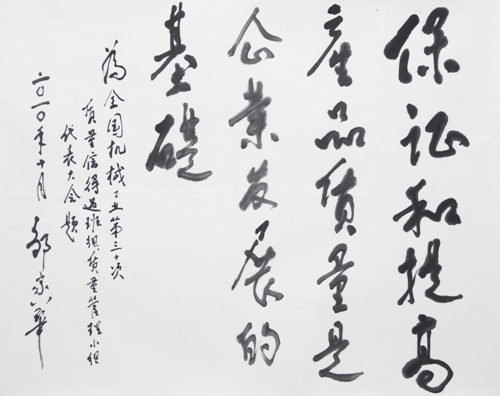 保证和提高
产品质量是
企业发展的
基础
为全国机械工业第三十次
质量信得过班组质量管理小组
代表大会题
二〇一〇年十月 邹家华